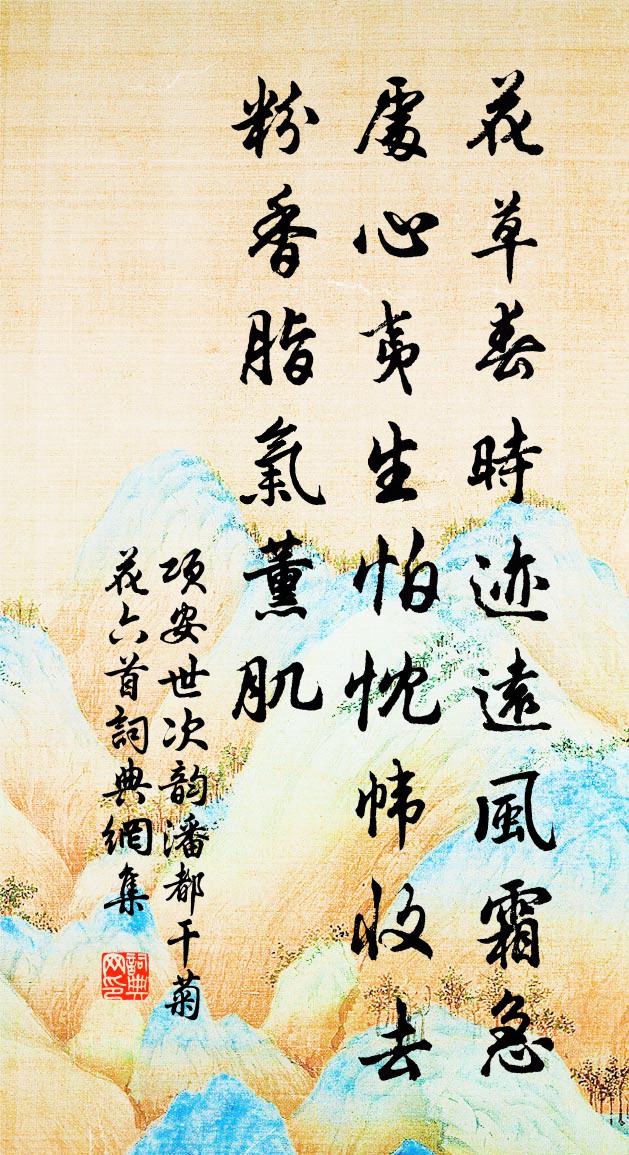 花草春時迹遠風霜急
處心夷生怕忱幃收去
粉香脂氣薰肌
項安世次韵潘都干菊
花六首詞典網集
詞典网印